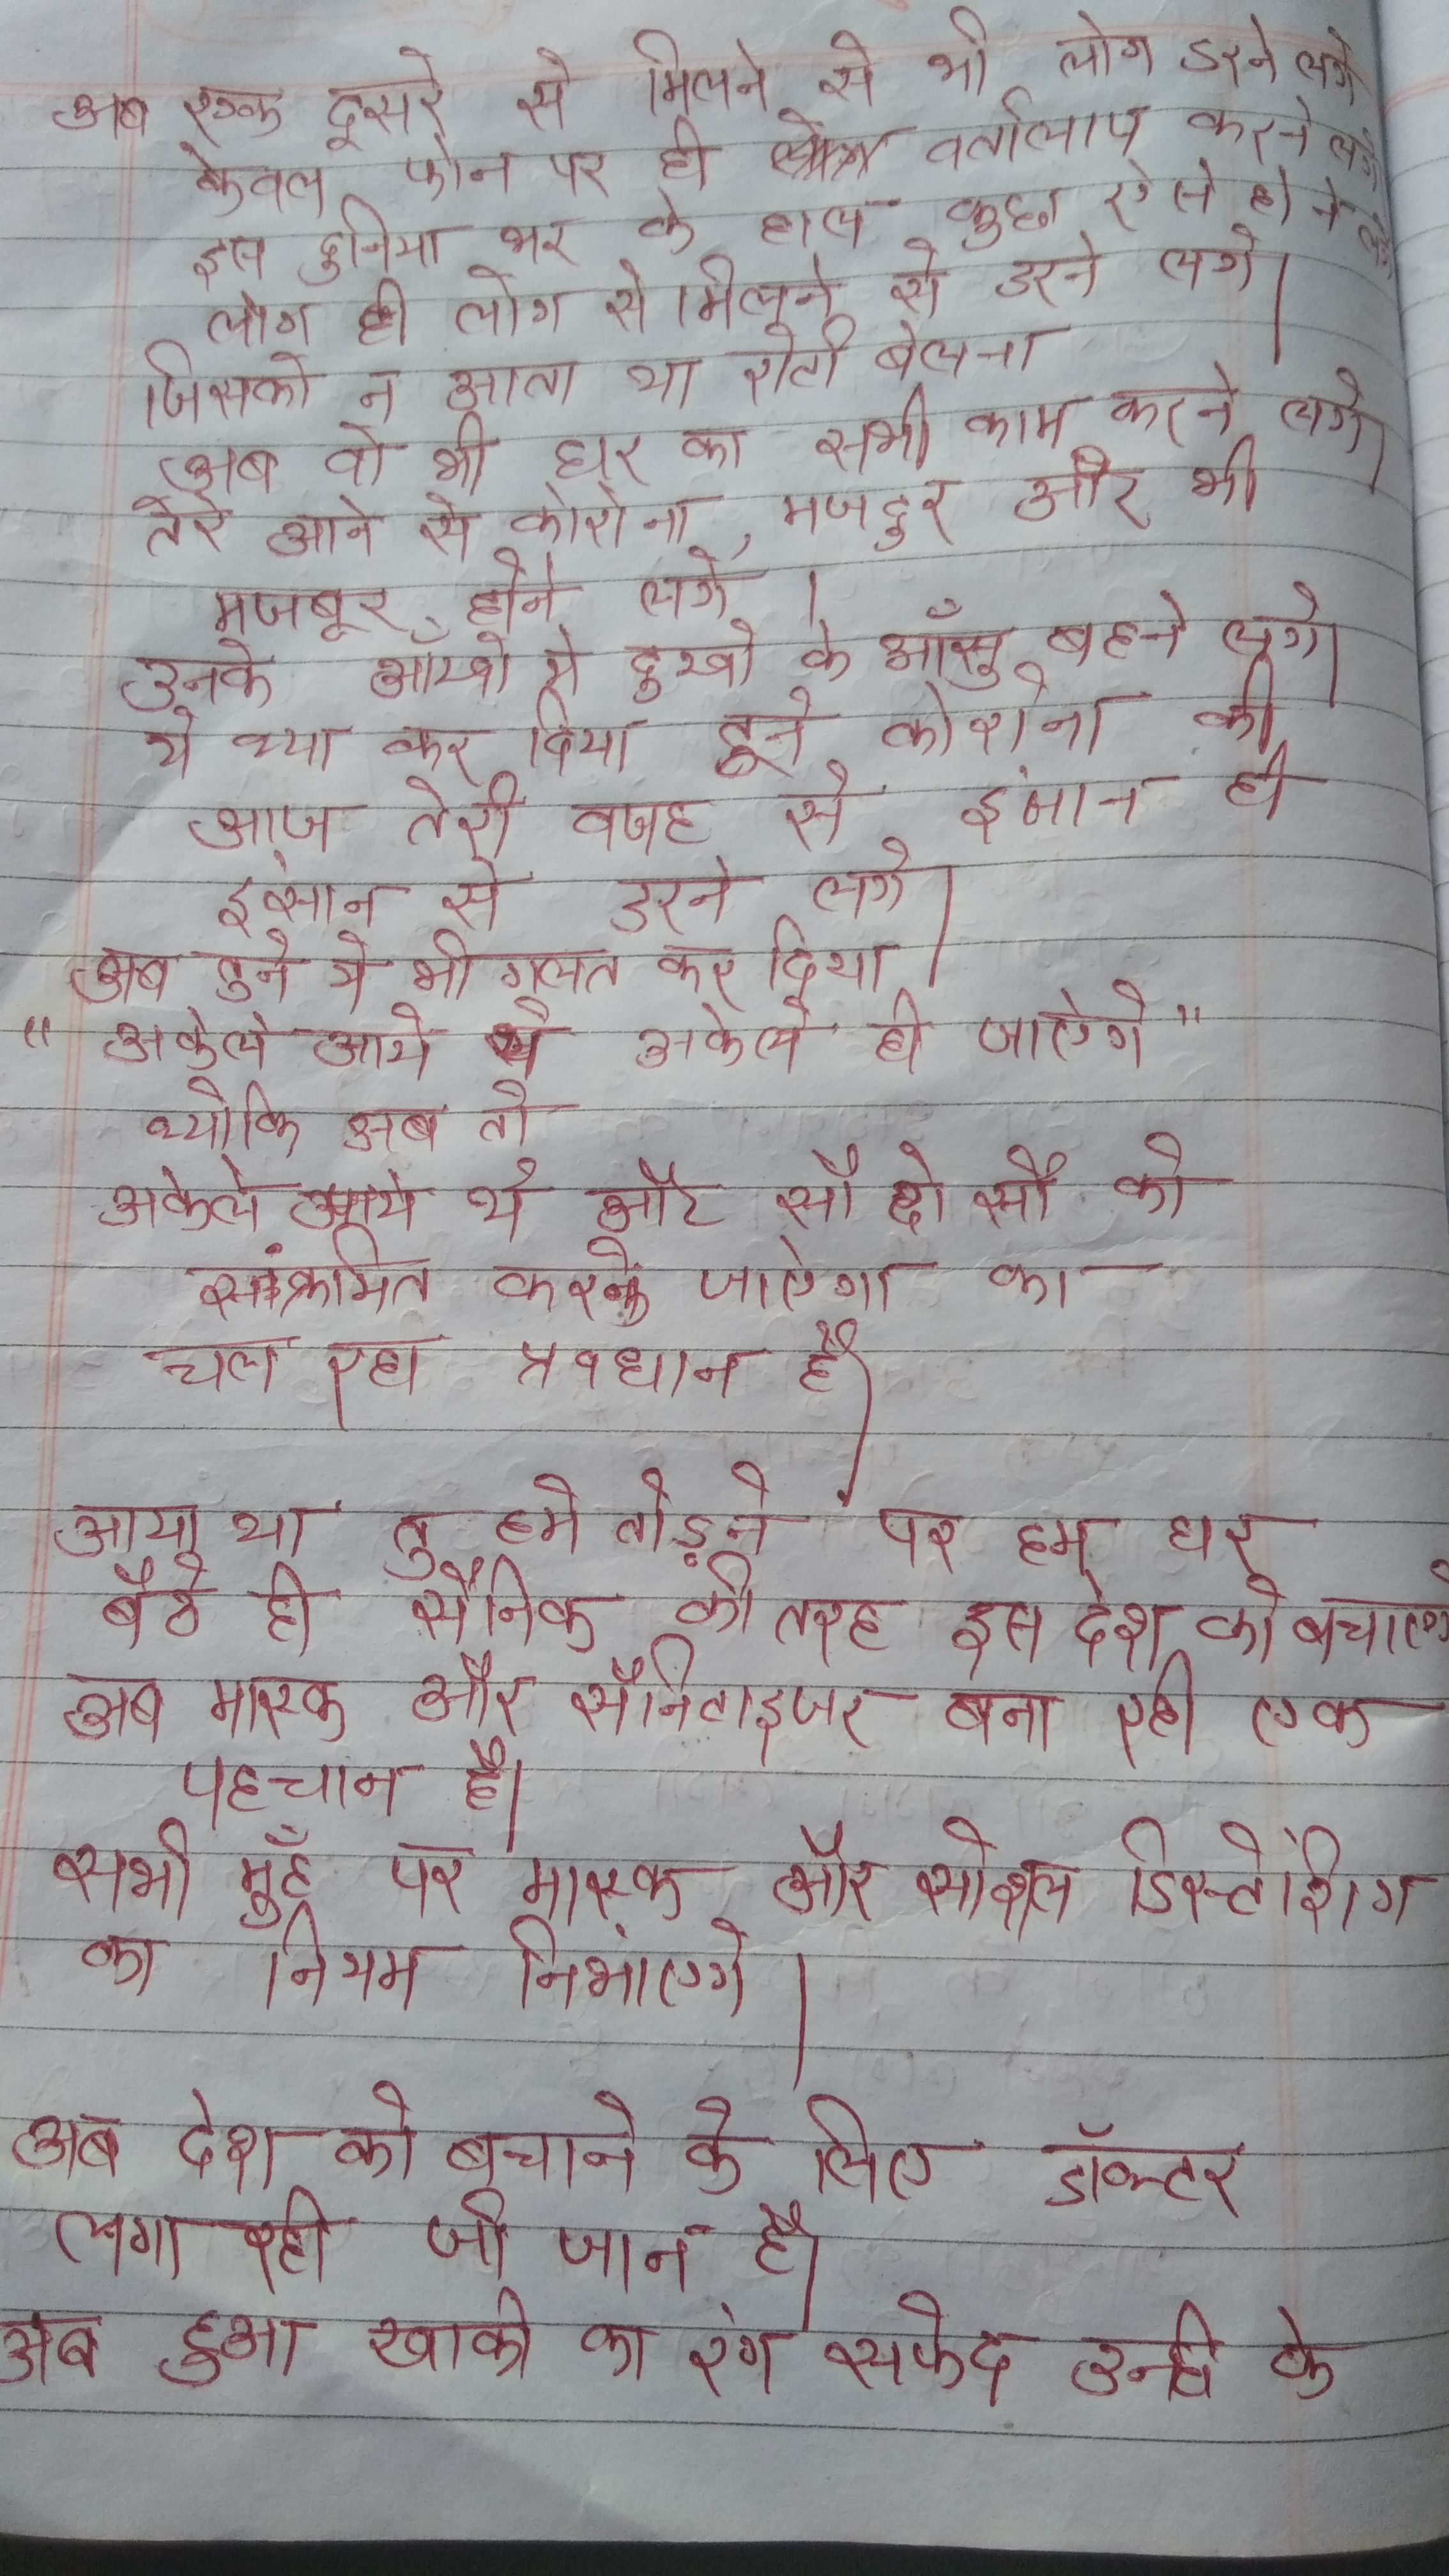 अब एक दूसरे से मिलने से भी लोग डरने लगे
केवल फोन पर ही वर्तालाप करने लगे
इस दुनिया भर के हाल कुछ ऐसे होने लगे
लोग ही लोग से मिलने से डरने लगे।
जिसको न आता था रोटी बेलना
अब वो भी घर का सभी काम करने लगे।
तेरे आने से कोरोना, मजदुर और भी
मजबूर होने लगे।
उनके आँखो से दुखो के आँसु बहने लगे।
ये क्या कर दिया तूने कोरोना की
आज तेरी वजह से इंसान ही
इंसान से डरने लगे।
अब तुने ये भी गलत कर दिया।
"अकेले आये थे अकेले ही जाऐगे"
क्योकि अब तो
अकेले आये थे और सौ दो सौ को
संक्रमित करके जाऐगा का
चल रहा प्रवधान है।
आया था तु हमे तोड़ने पर हम घर
बैठे ही सैनिक की तरह इस देश को बचाएगे
अब मास्क और सैनिटाइजर बना रही एक
पहचान है।
सभी मुँह पर मास्क और सोशल डिस्टेंशिग
का नियम निभाएगे।
अब देश को बचाने के लिए डॉक्टर
लगा रही जी जान है।
अब हुआ खाकी का रंग सफेद उन्ही के